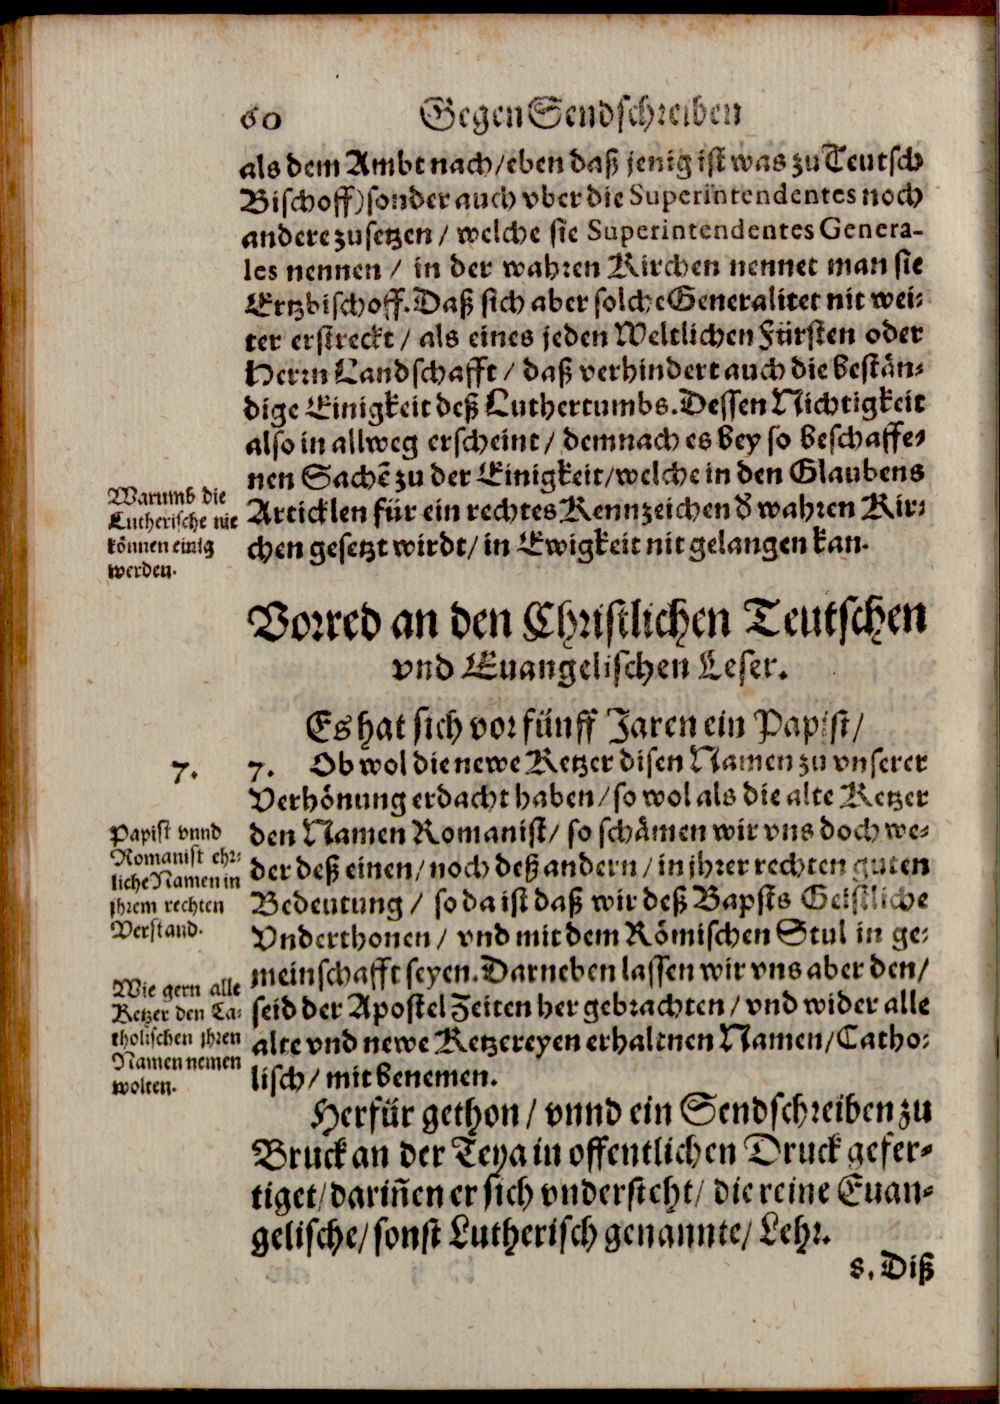 60 GegenSendschreiben
als dem Ambt nach/eben daß jenig ist was zu Teutsch
Bischoff) sonder auch vber die Superintendentes noch
andere zusetzen / welche sie Superintendentes Genera-
les nennen / in der wahren Kirchen nennet man sie
Ertzbischoff. Daß sich aber solche Generalitet nit wei-
ter erstreckt / als eines jeden Weltlichen Fürsten oder
Herrn Landschafft / daß verhindert auch die bestän-
dige Einigkeit deß Luthertumbs. Dessen Nichtigkeit
also in allweg erscheint / demnach es bey so beschaffe-
nen Sachẽ zu der Einigkeit/welche in den Glaubens
Articklen für ein rechtes Kennzeichen d' wahren Kir-
chen gesetzt wirdt/ in Ewigkeit nit gelangen kan.
Warumb die
Lutherische nit
können einig
werden.
Vorred an den Christlichen Teutschen
vnd Euangelischen Leser.
Es hat sich vor fünff Jaren ein Papist/
7.
7. Ob wol die newe Ketzer disen Namen zu vnserer
Verhönung erdacht haben/so wol als die alte Ketzer
den Namen Romanist/ so schämen wir vns doch we-
der deß einen/ noch deß andern / in jhrer rechten guten
Bedeutung / so da ist daß wir deß Bapsts Geistliche
Vnderthonen/ vnd mit dem Römischen Stul in ge-
meinschafft seyen. Darneben lassen wir vns aber den/
seid der Apostel Zeiten her gebrachten / vnd wider alle
alte vnd newe Ketzereyen erhaltnen Namen/Catho-
lisch/ mit benemen.
Papist vnnd
Romanist ehr-
liche Namen in
jhrem rechten
Verstand.
Wie gern alle
Ketzer den Ca-
tholischen jhren
Namen nemen
wolten.
Herfür gethon/ vnnd ein Sendschreiben zu
Bruck an der Teya in offentlichen Druck gefer-
tiget/ dariñen er sich vndersteht/ die reine Euan-
gelische/ sonst Lutherisch genannte/ Lehr.
8. Diß